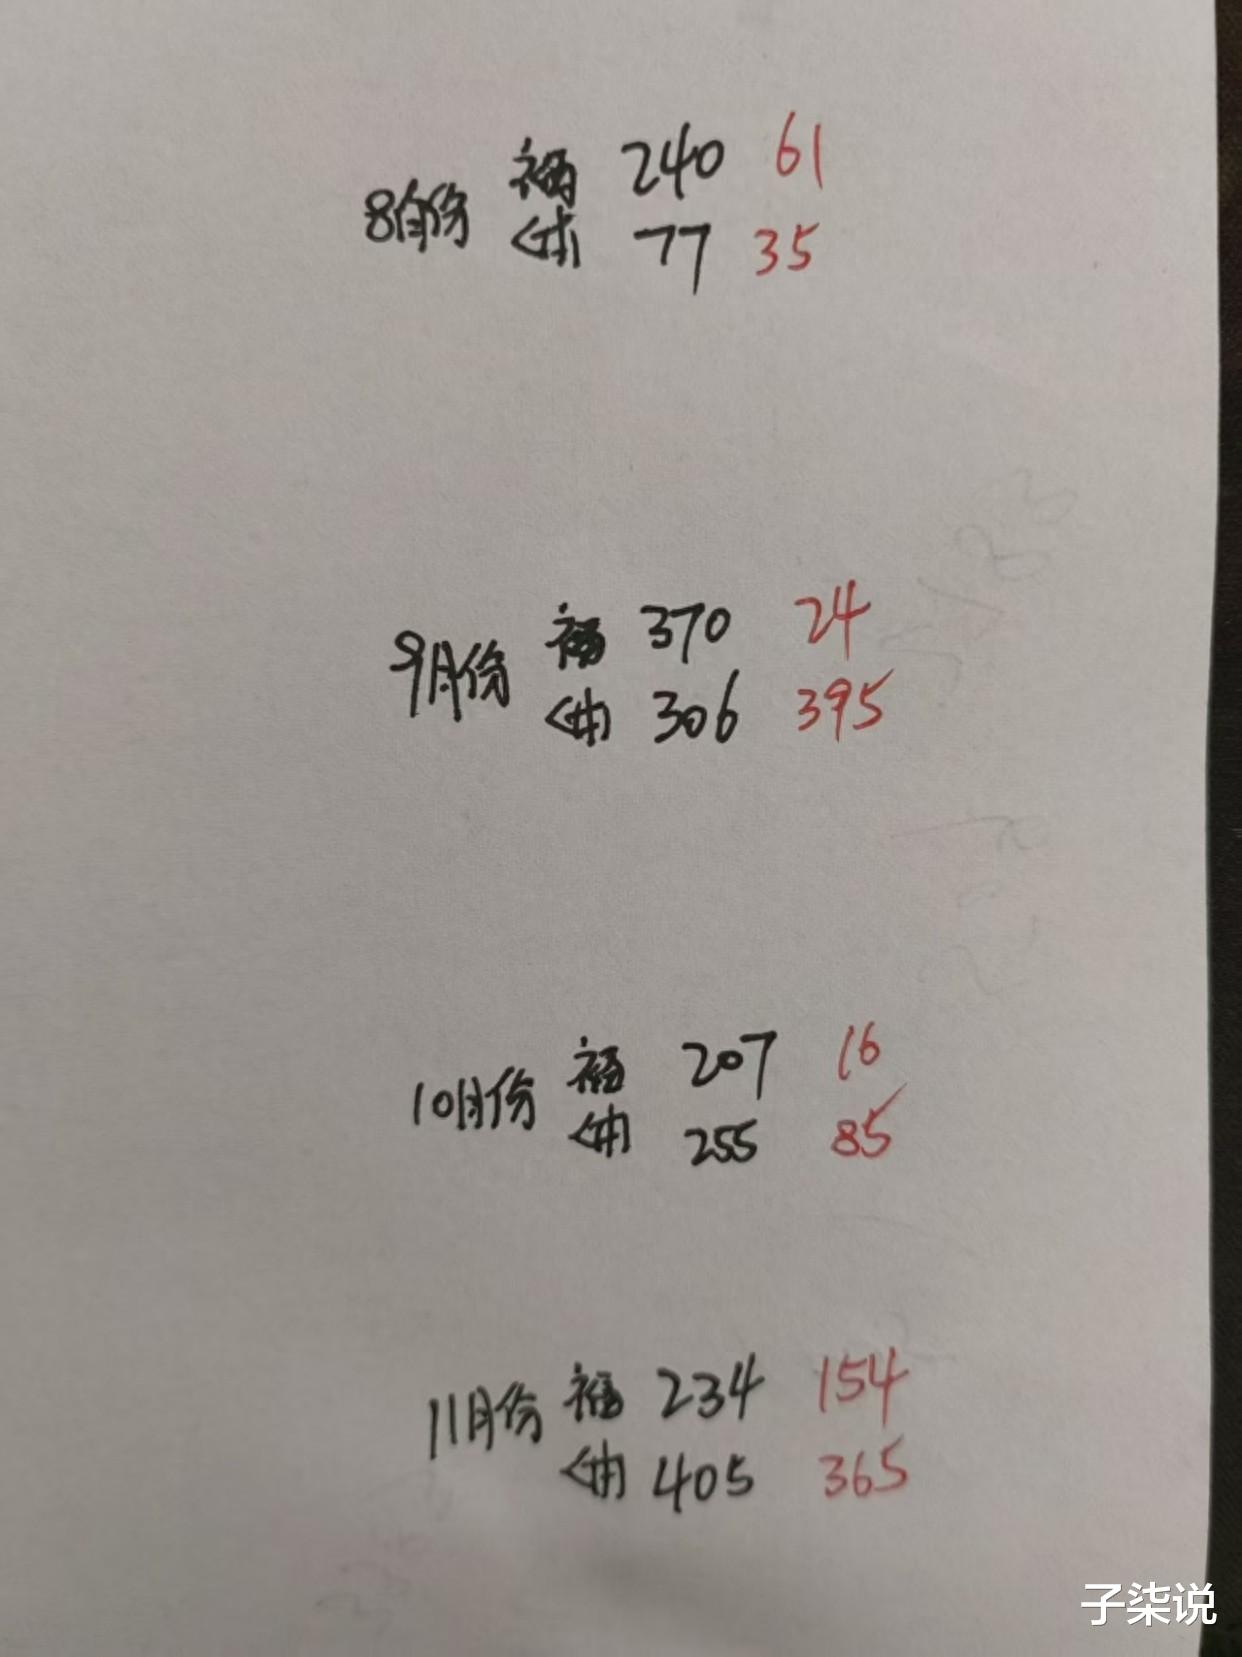 8月份 福 240 61
体 77 35
9月份 福 370 24
体 306 395
10月份 福 207 16
体 255 85
11月份 福 234 154
体 405 365
子柒说